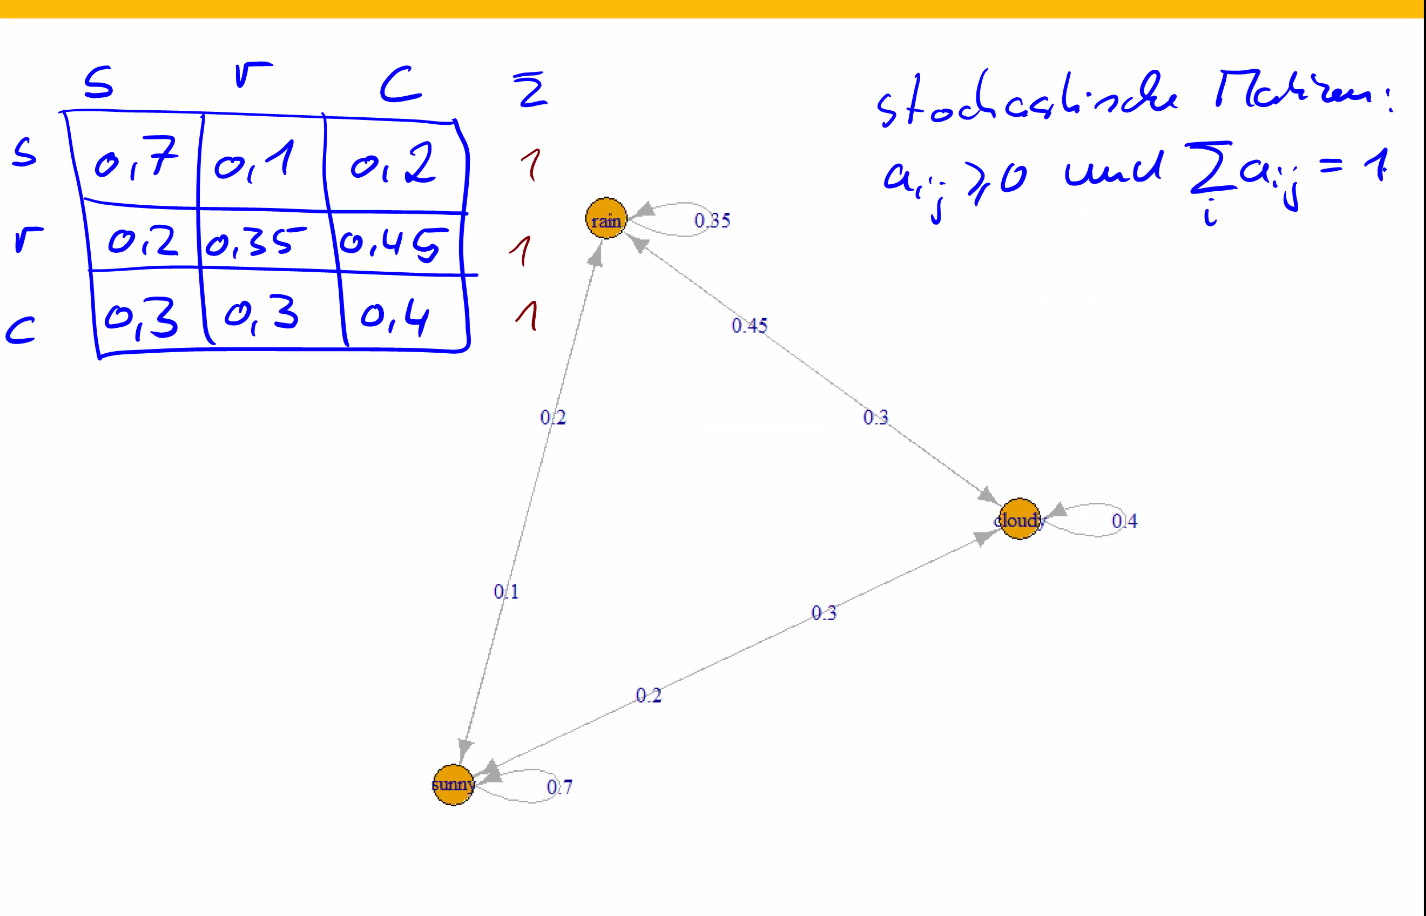 s r c Σ
s 0,7 0,1 0,2 1
r 0,2 0,35 0,45 1
c 0,3 0,3 0,4 1
stochastische Matrizen:
aᵢⱼ ≥ 0 und Σᵢ aᵢⱼ = 1
rain 0.35
0.45
0.2 0.3
cloudy 0.4
0.1 0.3
0.2
sunny 0.7